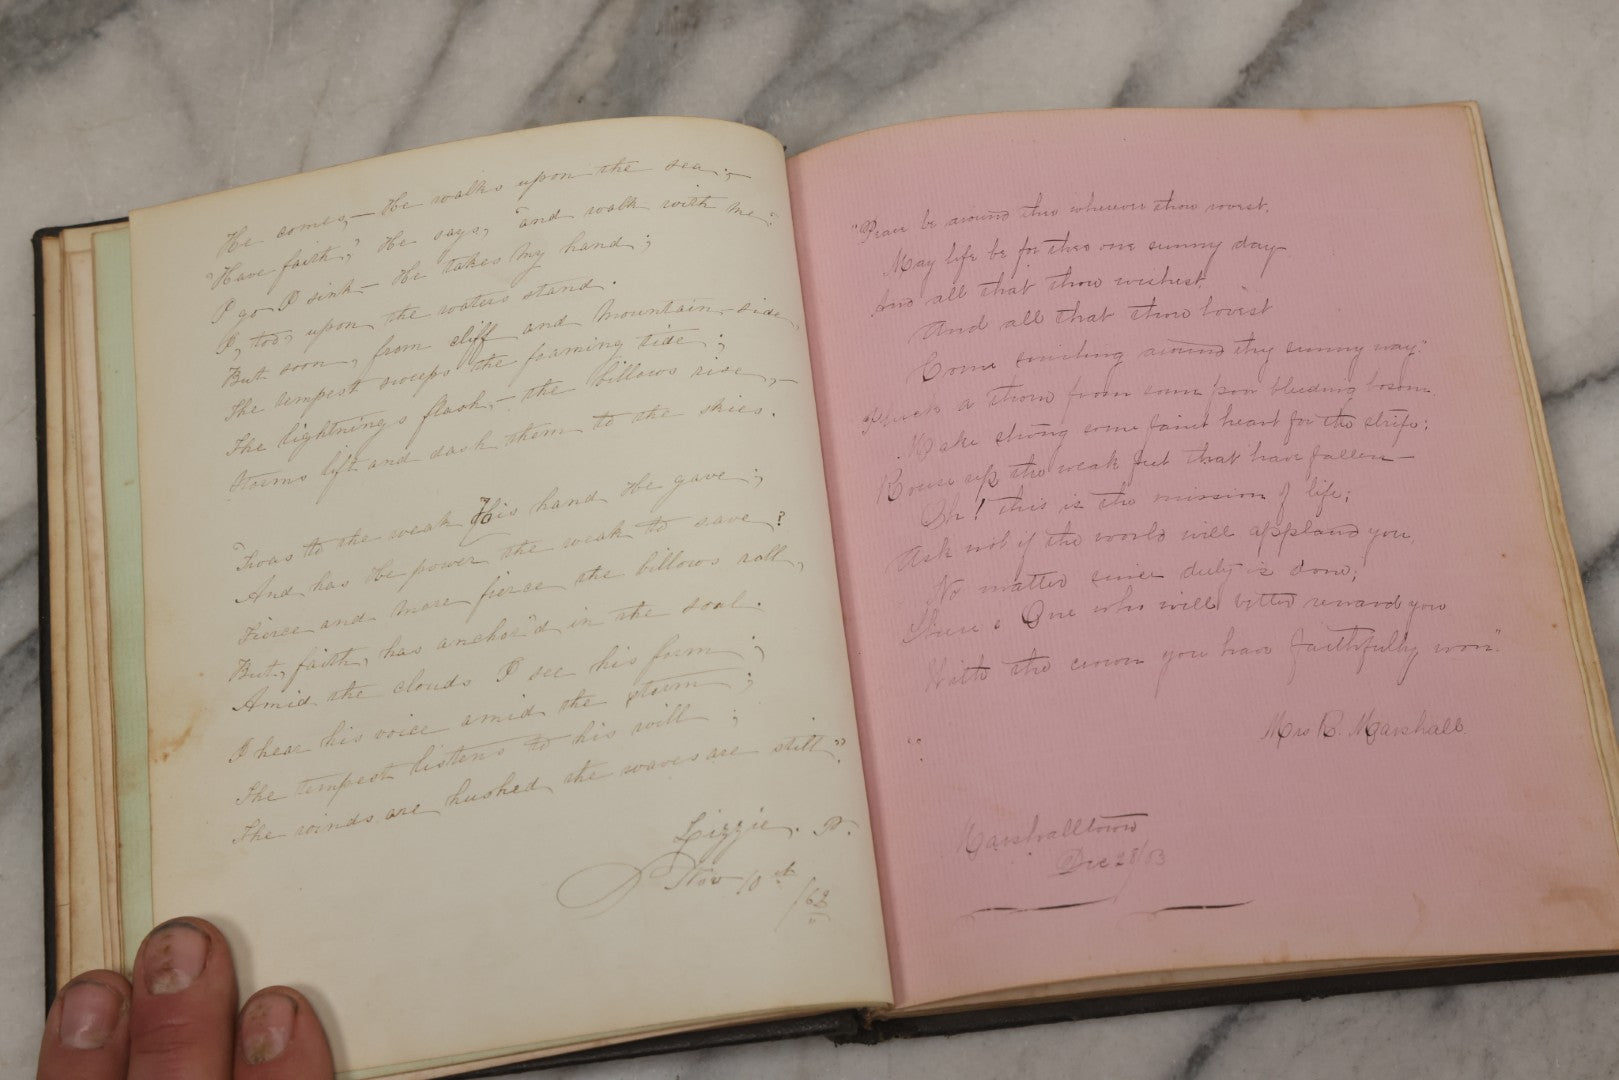 He comes,— He walks upon the sea;—
"Have faith," He says, "and walk with me."
I go I sink— He takes my hand;
I, too, upon the waters stand.
But soon, from cliff and mountain-side,
The tempest sweeps the foaming tide;
The lightnings flash,— the billows rise,—
Storms lift and dash them to the skies.
'Twas to the weak His hand He gave;
And has He power the weak to save?
Fierce and more fierce the billows roll,
But, faith, has anchor'd in the soul.
Amid the clouds I see his form;
I hear his voice amid the storm;
The tempest listens to his will;
The winds are hushed the waves are still"
Lizzie. P.
Nov 10th /63
"Peace be around thee wherever thou rovest,
May life be for thee one sunny day
And all that thou wishest,
And all that thou lovest
Come smiling around thy sunny way."
Pluck a thorn from some poor bleeding bosom
Make strong some faint heart for the strife;
Rouse up the weak feet that have fallen—
Oh! this is the mission of life;
Ask not if the world will applaud you,
No matter since duty is done;
There's One who will better reward you
With the crown you have faithfully won".
Mrs R. Marshall
Marshalltown
Dec 28/63